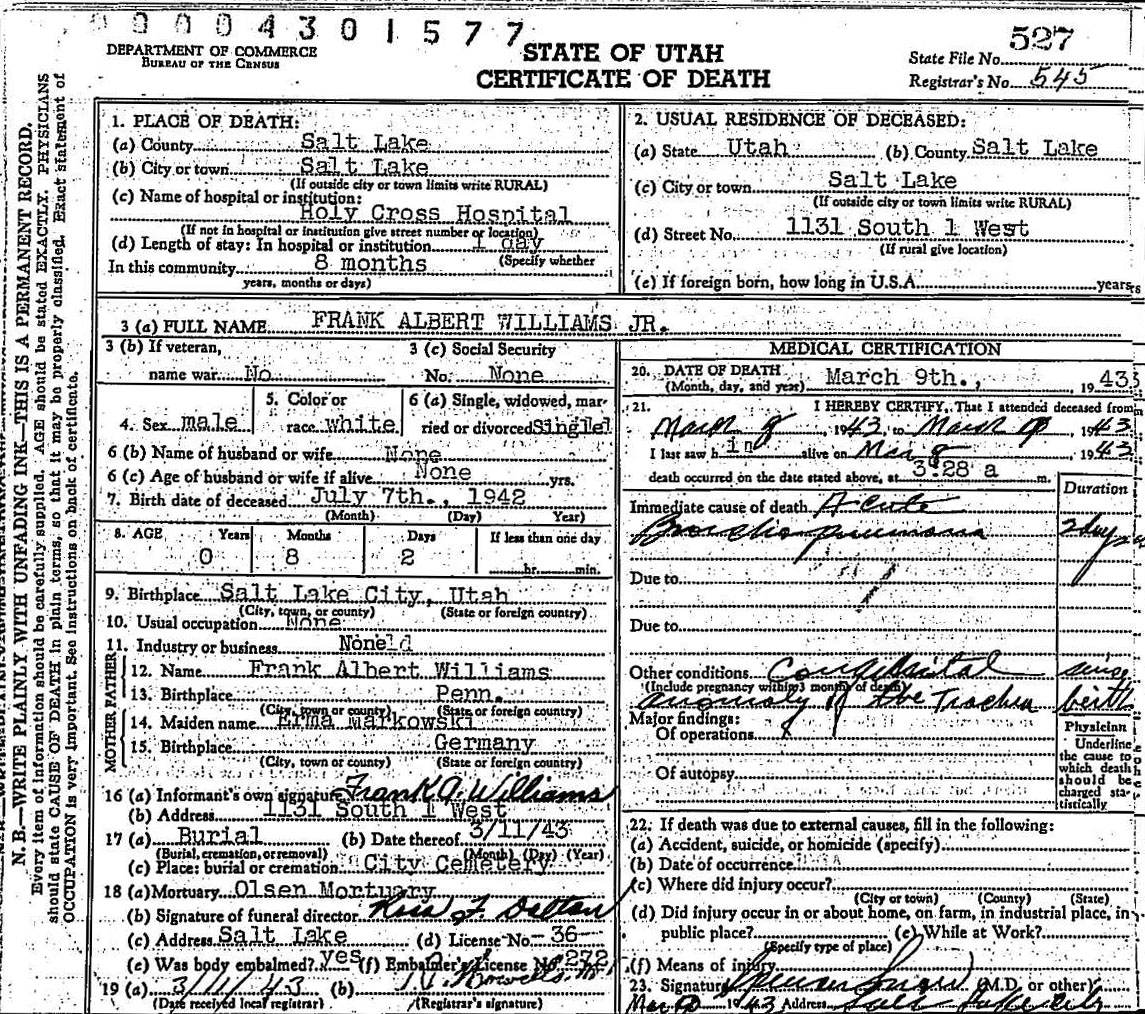 0 9 0 0 4 3 0 1 5 7 7
DEPARTMENT OF COMMERCE
BUREAU OF THE CENSUS
STATE OF UTAH
CERTIFICATE OF DEATH
State File No. 527
Registrar's No. 545
N. B.—WRITE PLAINLY WITH UNFADING INK—THIS IS A PERMANENT RECORD.
Every item of information should be carefully supplied. AGE should be stated EXACTLY. PHYSICIANS
should state CAUSE OF DEATH in plain terms, so that it may be properly classified. Exact statement of
OCCUPATION is very important. See instructions on back of certificate.
1. PLACE OF DEATH:
(a) County Salt Lake
(b) City or town Salt Lake
(If outside city or town limits write RURAL)
(c) Name of hospital or institution:
Holy Cross Hospital
(If not in hospital or institution give street number or location)
(d) Length of stay: In hospital or institution 1 day
(Specify whether
In this community 8 months
years, months or days)
2. USUAL RESIDENCE OF DECEASED:
(a) State Utah (b) County Salt Lake
(c) City or town Salt Lake
(If outside city or town limits write RURAL)
(d) Street No. 1131 South 1 West
(If rural give location)
(e) If foreign born, how long in U.S.A. years
3 (a) FULL NAME FRANK ALBERT WILLIAMS JR.
3 (b) If veteran,
name war No
3 (c) Social Security
No. None
4. Sex male
5. Color or
race white
6 (a) Single, widowed, mar-
ried or divorced Single
6 (b) Name of husband or wife None
6 (c) Age of husband or wife if alive None yrs.
7. Birth date of deceased July 7th., 1942
(Month) (Day) Year)
8. AGE Years Months Days If less than one day
0 8 2 hr. min.
9. Birthplace Salt Lake City, Utah
(City, town, or county) (State or foreign country)
10. Usual occupation None
11. Industry or business None
FATHER
12. Name Frank Albert Williams
13. Birthplace Penn.
(City, town or county) (State or foreign country)
MOTHER
14. Maiden name Erma Markowski
15. Birthplace Germany
(City, town or county) (State or foreign country)
16 (a) Informant's own signature Frank A. Williams
(b) Address 1131 South 1 West
17 (a) Burial (b) Date thereof 3/11/43
(Burial, cremation, or removal) (Month) (Day) (Year)
(c) Place: burial or cremation City Cemetery
18 (a) Mortuary Olsen Mortuary
(b) Signature of funeral director Ross F. Dalton
(c) Address Salt Lake (d) License No. 36
(e) Was body embalmed? yes (f) Embalmer's License No. 272
19 (a) 3/11/43 (b)
(Date received local registrar) (Registrar's signature)
MEDICAL CERTIFICATION
20. DATE OF DEATH
(Month, day, and year) March 9th., 1943
21. I HEREBY CERTIFY, That I attended deceased from
March 8, 1943, to March 9, 1943
I last saw him alive on Mar 8 1943
death occurred on the date stated above, at 3:28 a m.
Duration
Immediate cause of death Acute
Bronchopneumonia 2 days
Due to
Due to
Other conditions Congenital since
(Include pregnancy within 3 months of death)
anomaly of the Trachea birth
Major findings:
Of operations
Of autopsy
Physician
Underline
the cause to
which death
should be
charged sta-
tistically
22. If death was due to external causes, fill in the following:
(a) Accident, suicide, or homicide (specify)
(b) Date of occurrence
(c) Where did injury occur?
(City or town) (County) (State)
(d) Did injury occur in or about home, on farm, in industrial place, in
public place? (e) While at Work?
(Specify type of place)
(f) Means of injury
23. Signature Spencer Snow (M.D. or other)
Mar 9 1943 Address Salt Lake City